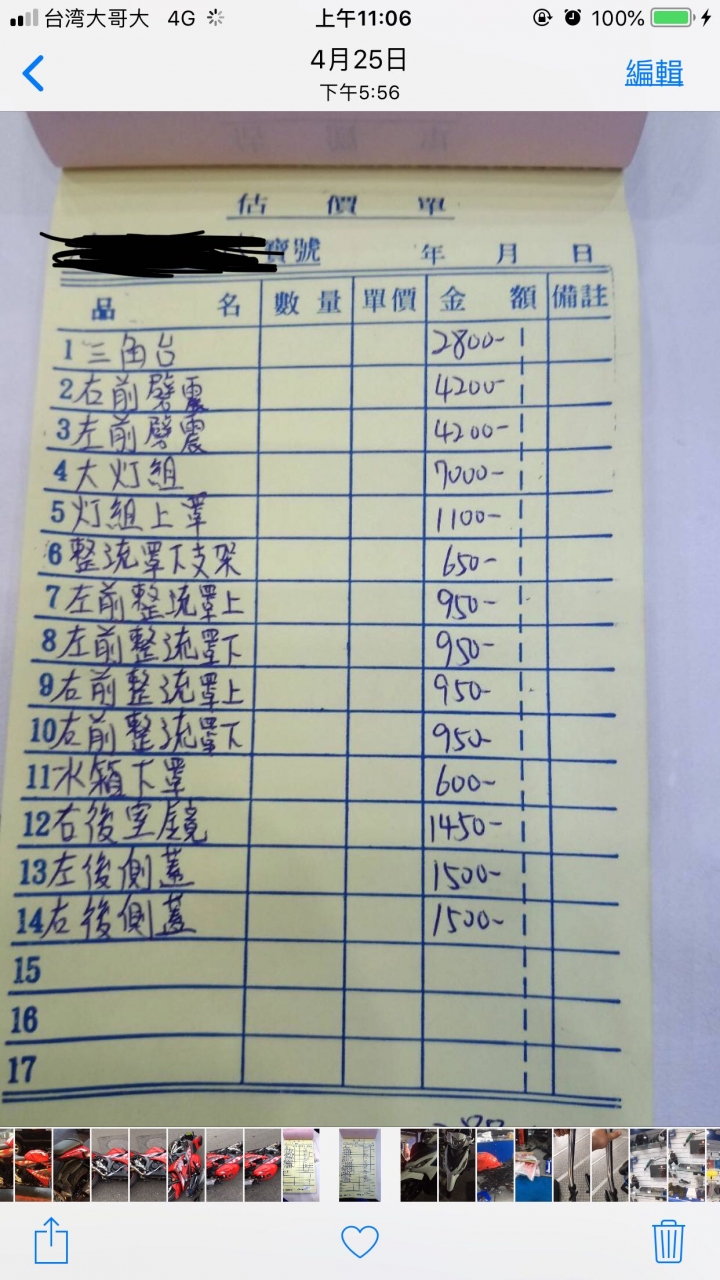 台湾大哥大 4G 上午11:06 100%
4月25日
下午5:56
編輯
估價單
寶號 年 月 日
品名 數量 單價 金額 備註
1 三角台 2800-
2 右前劈震 4200-
3 左前劈震 4200-
4 大灯組 7000-
5 灯組上罩 1100-
6 整流罩下支架 650-
7 左前整流罩上 950-
8 左前整流罩下 950-
9 右前整流罩上 950-
10 右前整流罩下 950-
11 水箱下罩 600-
12 右後室鏡 1450-
13 左後側蓋 1500-
14 右後側蓋 1500-
15
16
17